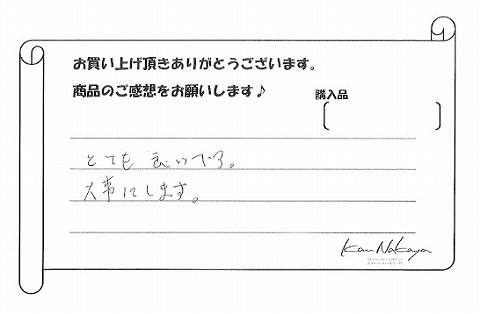 お買い上げ頂きありがとうございます。
商品のご感想をお願いします♪
購入品
とても良いです。
大事にします。
Kan Nakaya